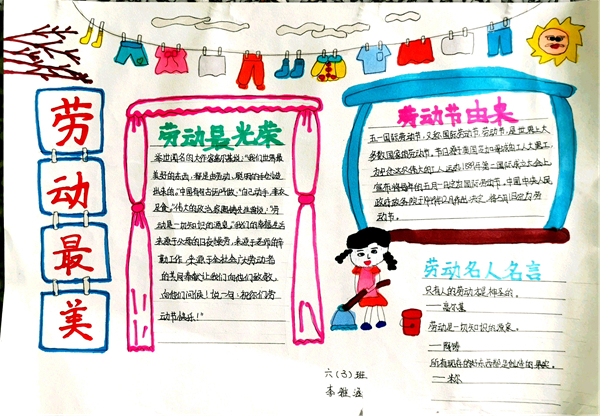 劳
动
最
美
劳动最光荣
举世闻名的大作家高尔基说："我们世界最
美好的东西，都是由劳动、聪明的手创造
出来的。"中国有句古话叫做："自己动手，丰衣
足食。"伟大的政治家陶铸先生曾说："劳
动是一切知识的源泉。"我们的幸福生活
来源于父母的日夜操劳，来源于老师的辛
勤工作，来源于全社会广大劳动者
的美同奉献让我们向他们致敬，
向他们问候！如一句：祝你们劳
动节快乐！"
劳动节由来
五一国际劳动节，又称国际劳动节、劳动节，是世界上大
多数国家的劳动节。节日源于美国芝加哥城的工人大罢工，
为纪念这次伟大的工人运动，1889年第二国际成立大会上
宣布将每年的五月一日定为国际劳动节。中国中央人民
政府政务院于1949年12月作出决定，将5月1日定为劳
动节。
劳动名人名言
只有人的劳动才是神圣的。
——高尔基
劳动是一切知识的源泉。
——陶铸
所有现存的好东西都是创造的果实。
——米尔
六(3)班
李雅涵